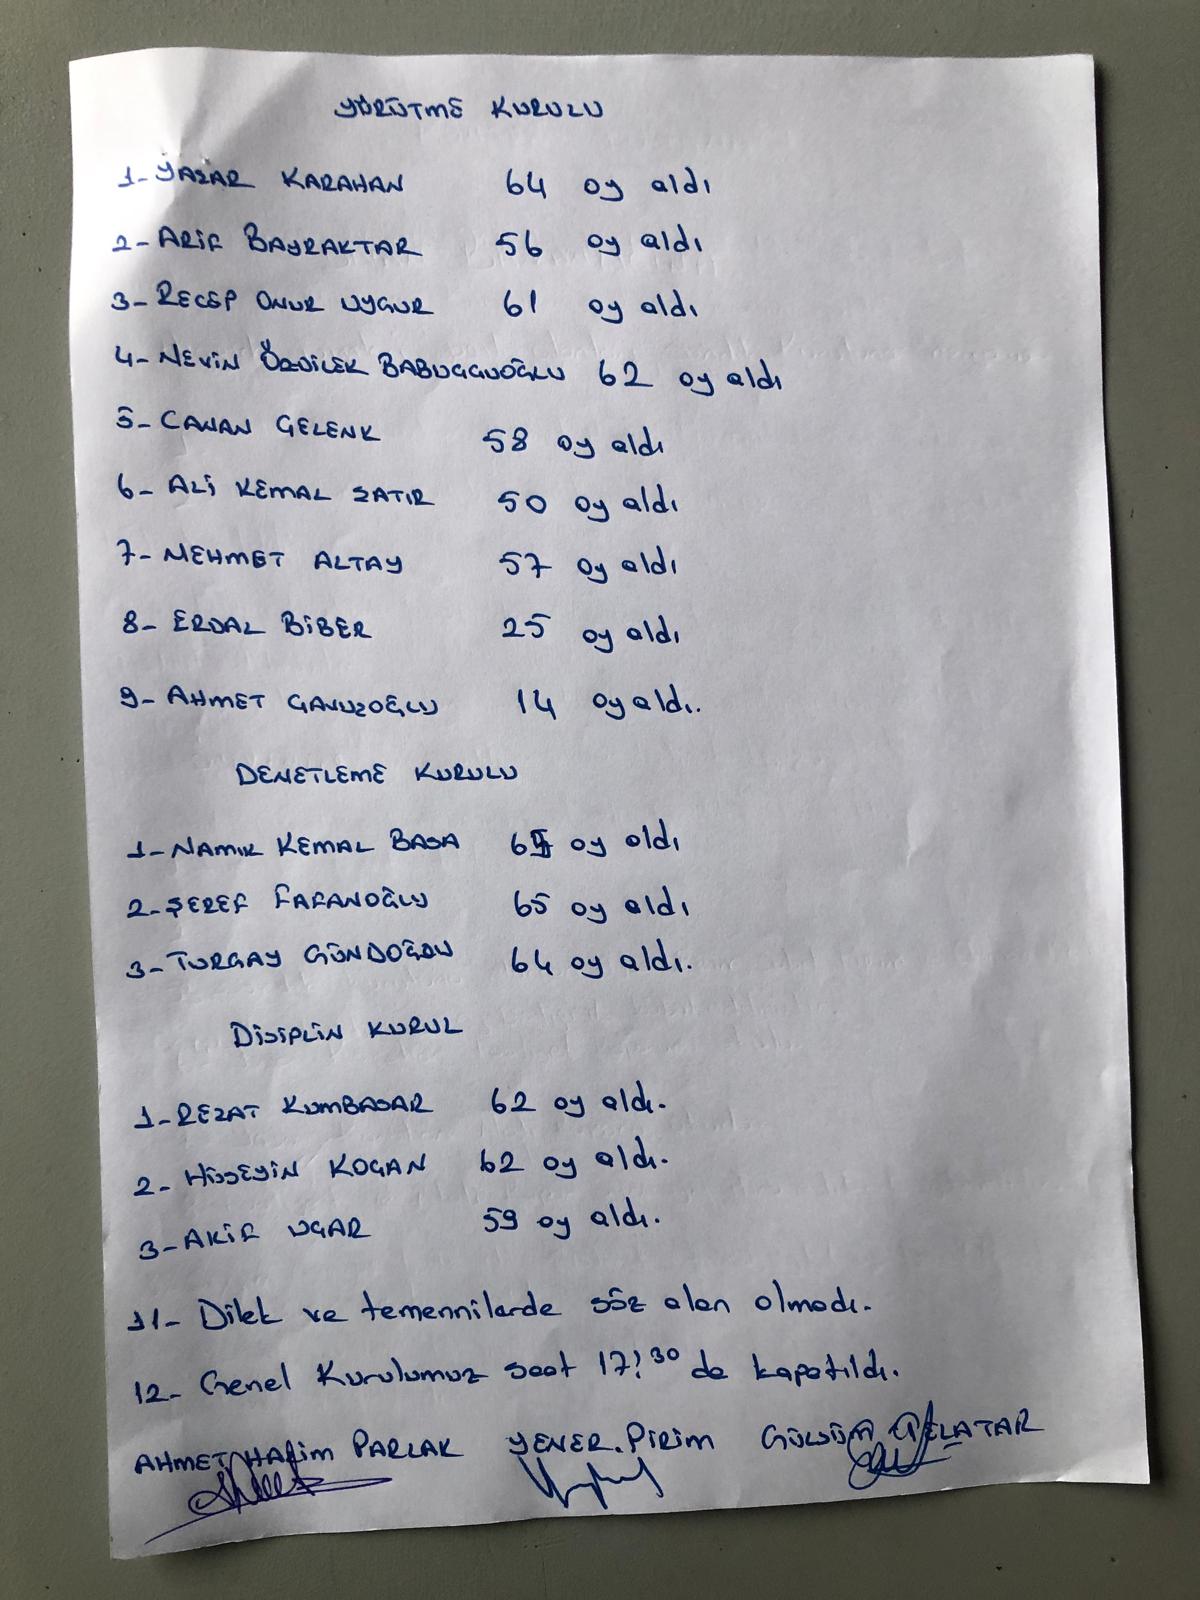 YÖRÜTME KURULU
1- YAŞAR KARAHAN 64 oy aldı
2- ARİF BAYRAKTAR 56 oy aldı
3- RECEP ONUR UYGUR 61 oy aldı
4- NEVİN ÖZDİLEK BABUGGUOĞLU 62 oy aldı
5- CANAN GELENK 58 oy aldı
6- ALİ KEMAL SATIR 50 oy aldı
7- MEHMET ALTAY 57 oy aldı
8- ERDAL BİBER 25 oy aldı
9- AHMET GAVUZOĞLU 14 oy aldı.
DENETLEME KURULU
1- NAMIK KEMAL BASA oy aldı
2- ŞEREF FAFANOĞLU 65 oy aldı
3- TURGAY GÜNDOĞDU 64 oy aldı.
DİSİPLİN KURUL
1- REZAT KUMBASAR 62 oy aldı.
2- HÜSEYİN KOGAN 62 oy aldı.
3- AKİF UGAR 59 oy aldı.
11- Dilek ve temennilerde söz alan olmadı.
12- Genel Kurulumuz saat 17:30 da kapatıldı.
AHMET HALİM PARLAK YENER.PİRİM